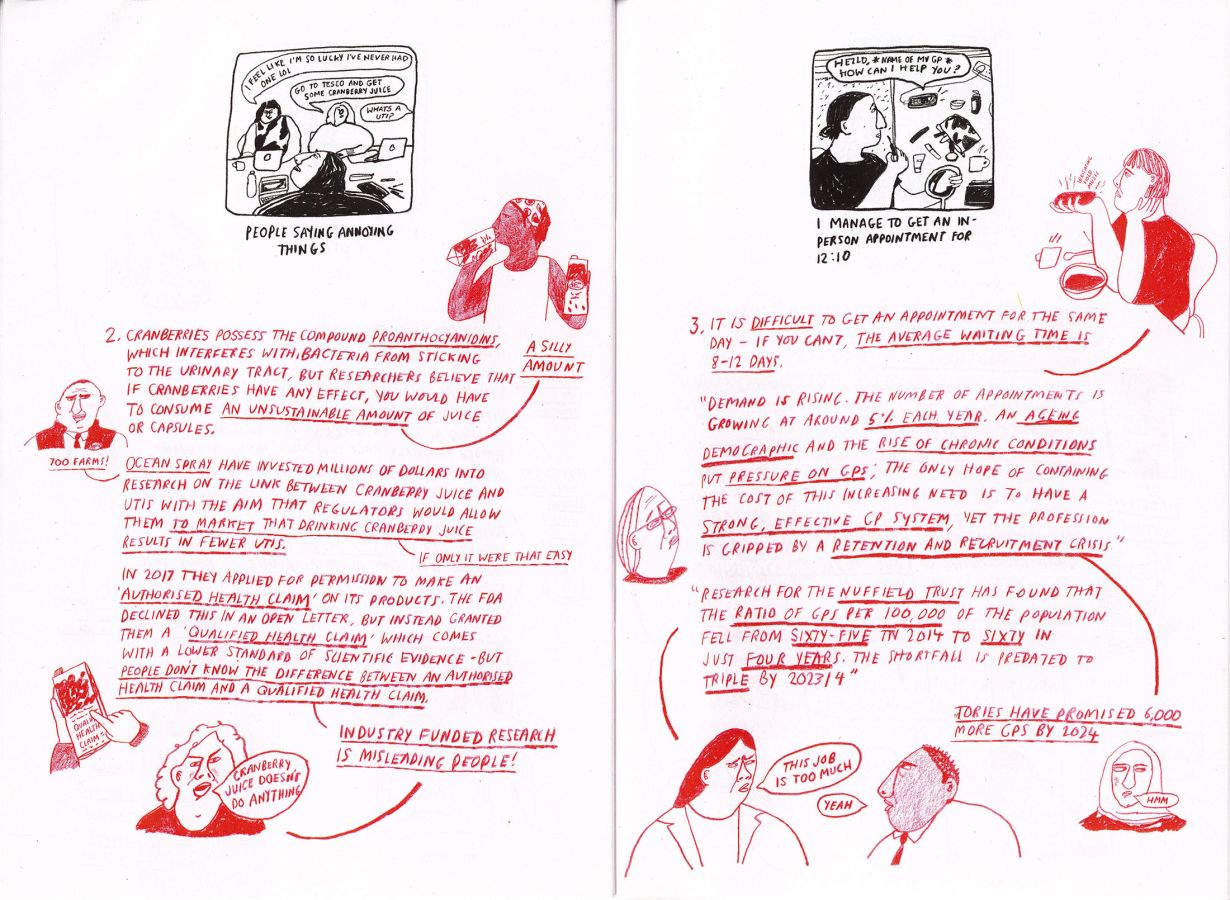 I FEEL LIKE I'M SO LUCKY I'VE NEVER HAD
ONE LOL
GO TO TESCO AND GET
SOME CRANBERRY JUICE
WHATS A
UTI?
PEOPLE SAYING ANNOYING
THINGS
2. CRANBERRIES POSSESS THE COMPOUND PROANTHOCYANIDINS,
WHICH INTERFERES WITH BACTERIA FROM STICKING
TO THE URINARY TRACT, BUT RESEARCHERS BELIEVE THAT
IF CRANBERRIES HAVE ANY EFFECT, YOU WOULD HAVE
TO CONSUME AN UNSUSTAINABLE AMOUNT OF JUICE
OR CAPSULES.
A SILLY
AMOUNT
700 FARMS!
OCEAN SPRAY HAVE INVESTED MILLIONS OF DOLLARS INTO
RESEARCH ON THE LINK BETWEEN CRANBERRY JUICE AND
UTIS WITH THE AIM THAT REGULATORS WOULD ALLOW
THEM TO MARKET THAT DRINKING CRANBERRY JUICE
RESULTS IN FEWER UTIS.
IF ONLY IT WERE THAT EASY
IN 2017 THEY APPLIED FOR PERMISSION TO MAKE AN
'AUTHORISED HEALTH CLAIM' ON ITS PRODUCTS. THE FDA
DECLINED THIS IN AN OPEN LETTER, BUT INSTEAD GRANTED
THEM A 'QUALIFIED HEALTH CLAIM' WHICH COMES
WITH A LOWER STANDARD OF SCIENTIFIC EVIDENCE - BUT
PEOPLE DON'T KNOW THE DIFFERENCE BETWEEN AN AUTHORISED
HEALTH CLAIM AND A QUALIFIED HEALTH CLAIM.
HEALTH
CLAIM
INDUSTRY FUNDED RESEARCH
IS MISLEADING PEOPLE!
CRANBERRY
JUICE DOESN'T
DO ANYTHING
HELLO, *NAME OF MY GP*
HOW CAN I HELP YOU?
I MANAGE TO GET AN IN-
PERSON APPOINTMENT FOR
12:10
HOLD
MUSIC
3. IT IS DIFFICULT TO GET AN APPOINTMENT FOR THE SAME
DAY - IF YOU CANT, THE AVERAGE WAITING TIME IS
8-12 DAYS.
"DEMAND IS RISING. THE NUMBER OF APPOINTMENTS IS
GROWING AT AROUND 5% EACH YEAR. AN AGEING
DEMOGRAPHIC AND THE RISE OF CHRONIC CONDITIONS
PUT PRESSURE ON GPS; THE ONLY HOPE OF CONTAINING
THE COST OF THIS INCREASING NEED IS TO HAVE A
STRONG, EFFECTIVE GP SYSTEM, YET THE PROFESSION
IS GRIPPED BY A RETENTION AND RECRUITMENT CRISIS"
"RESEARCH FOR THE NUFFIELD TRUST HAS FOUND THAT
THE RATIO OF GPS PER 100,000 OF THE POPULATION
FELL FROM SIXTY-FIVE IN 2014 TO SIXTY IN
JUST FOUR YEARS. THE SHORTFALL IS PREDATED TO
TRIPLE BY 2023/4"
TORIES HAVE PROMISED 6,000
MORE GPS BY 2024
THIS JOB
IS TOO MUCH
YEAH
HMM